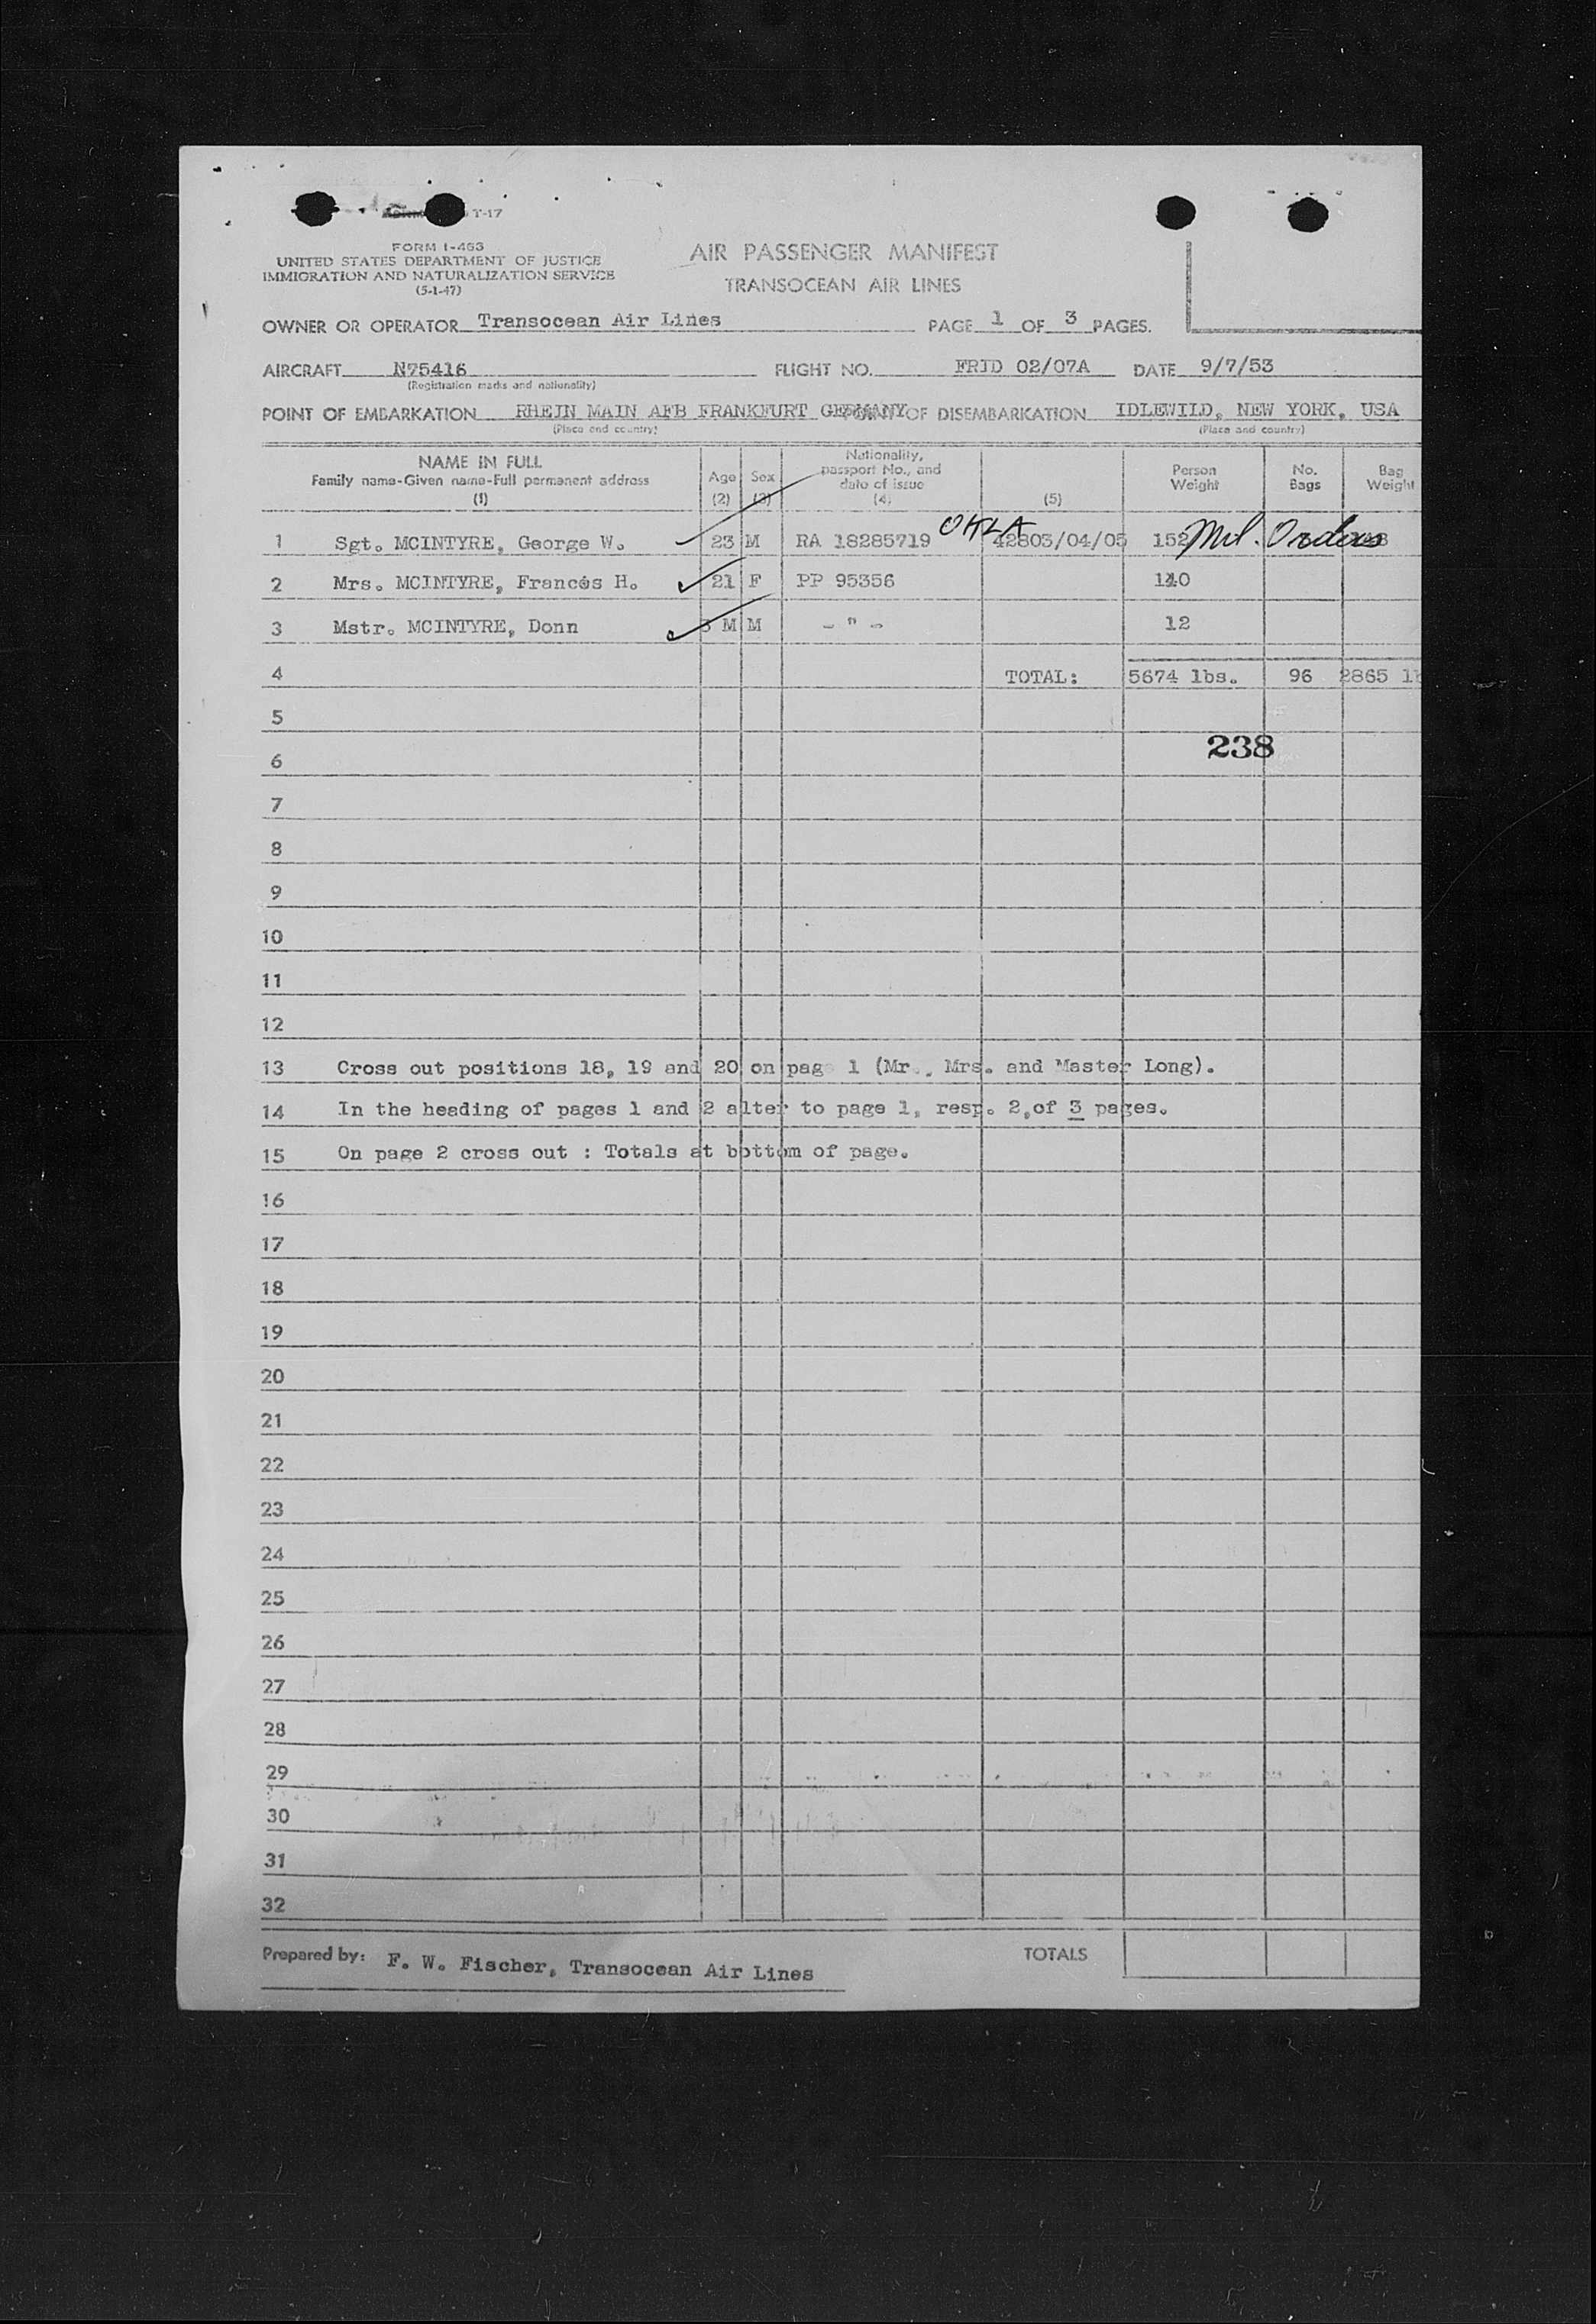 T-17
FORM I-463
UNITED STATES DEPARTMENT OF JUSTICE
IMMIGRATION AND NATURALIZATION SERVICE
(5-1-47)
AIR PASSENGER MANIFEST
TRANSOCEAN AIR LINES
OWNER OR OPERATOR Transocean Air Lines PAGE 1 OF 3 PAGES.
AIRCRAFT N75416 FLIGHT NO. FRJD 02/07A DATE 9/7/53
(Registration marks and nationality)
POINT OF EMBARKATION RHEIN MAIN AFB FRANKFURT GERMANY POINT OF DISEMBARKATION IDLEWILD, NEW YORK, USA
(Place and country) (Place and country)
NAME IN FULL
Family name-Given name-Full permanent address
(1)
Age (2) Sex (3) Nationality, passport No., and date of issue (4) (5) Person Weight No. Bags Bag Weight
OKLA Mil. Orders
1 Sgt. MCINTYRE, George W. 23 M RA 18285719 42803/04/05 152
2 Mrs. MCINTYRE, Frances H. 21 F PP 95356 140
3 Mstr. MCINTYRE, Donn M M - " - 12
4 TOTAL: 5674 lbs. 96 2865
5
238
6
7
8
9
10
11
12
13 Cross out positions 18, 19 and 20 on page 1 (Mr., Mrs. and Master Long).
14 In the heading of pages 1 and 2 alter to page 1, resp. 2,of 3 pages.
15 On page 2 cross out : Totals at bottom of page.
16
17
18
19
20
21
22
23
24
25
26
27
28
29
30
31
32
Prepared by: F. W. Fischer, Transocean Air Lines TOTALS